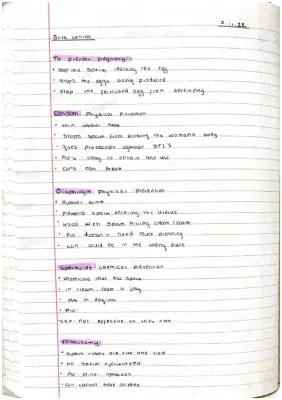 2.11.22
Birth control
To prevent pregnancy:
• Stop the sperm reaching the egg
• Stops the eggs being produced
• Stop the fertilised egg from developing
Condom: Physical Prevention
• thin rubber tube
• Stops sperm from entering the womans body
• gives protection against STI's
• Pro's easy to obtain and use
• Cons can break
Diaphragm: Physical Prevention
• Rubber dome
• Prevents sperm entering the uterus
• used with sperm killing cream/foam
• Pro doesn't need much planning
• Con could be in the wrong place
Spermicide: chemical prevention
• chemicals that kill sperm
• in cream, foam or jelly
• put in vagina
• Pro:
• Con: Not effective on there own
Vasectomy:
• Sperm tubes are cut and tied
• no sperm ejaculated
• Pro minor operation
• Con cannot have children